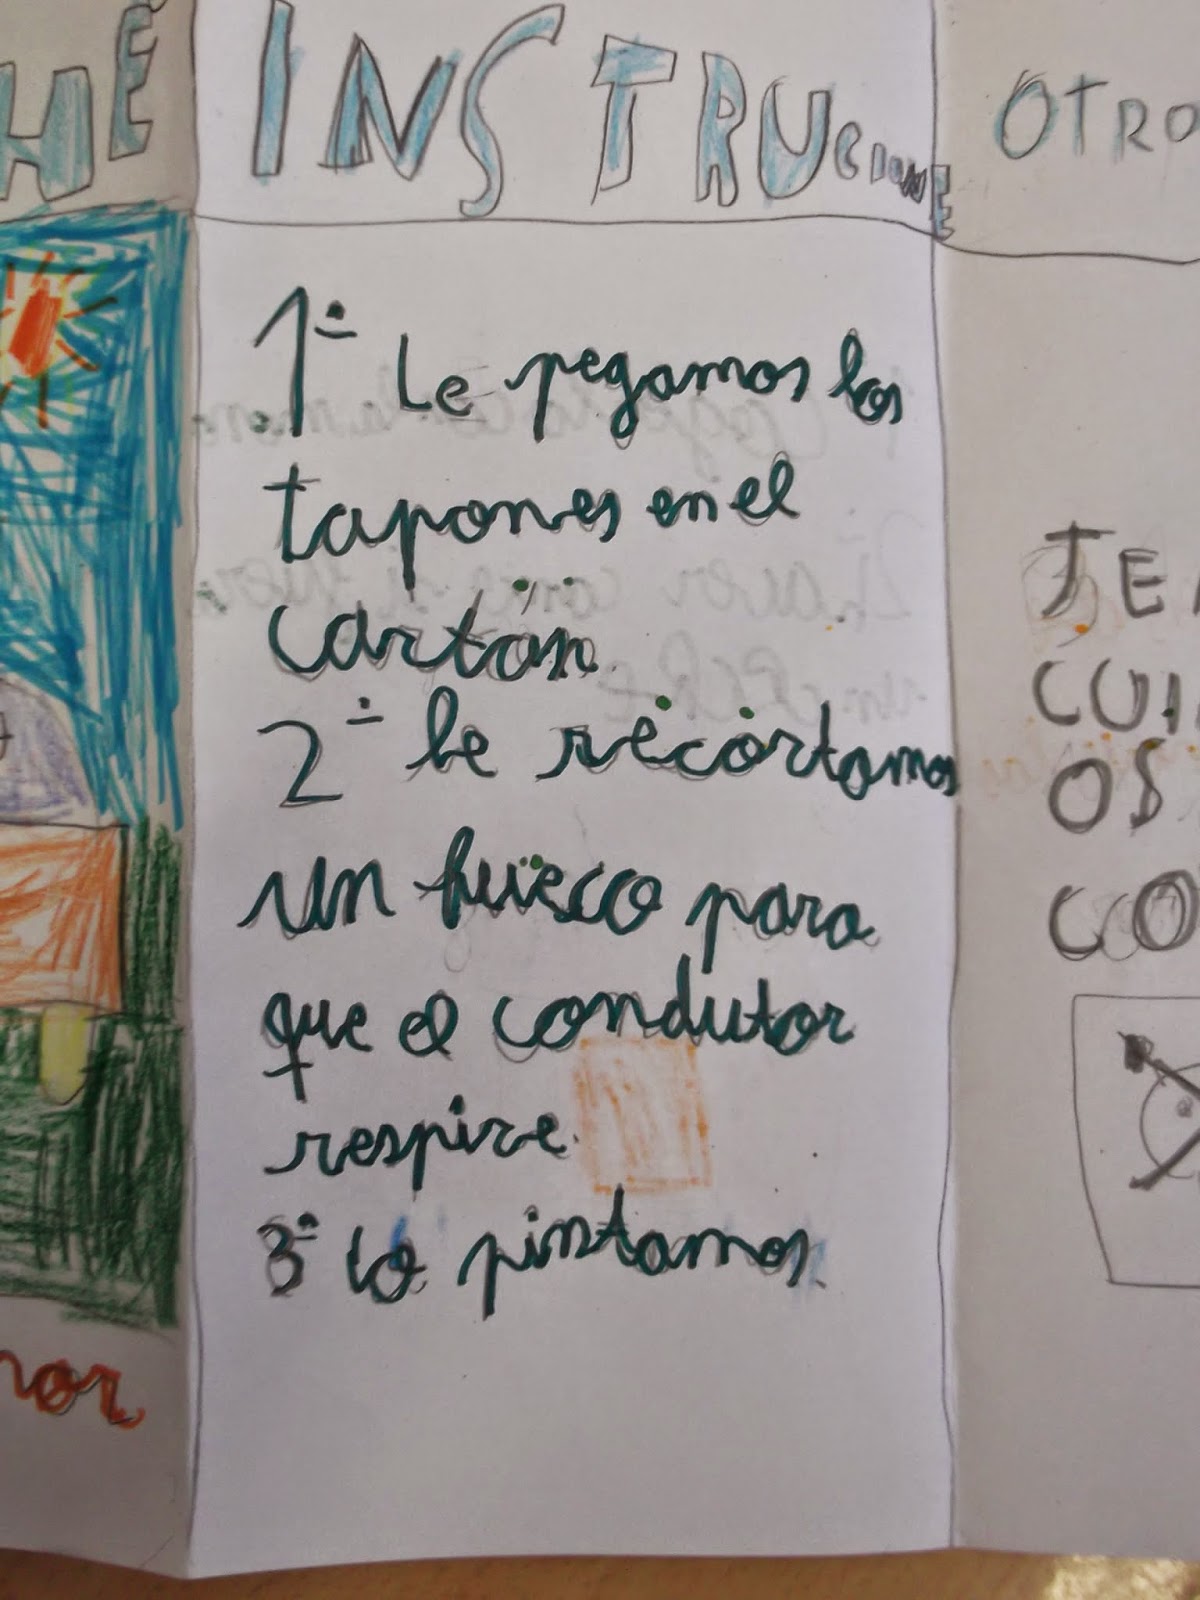 HE
INSTRUCIONE
OTRO
1º Le pegamos los
tapones en el
cartón.
2º le recortamos
un huesco para
que el condutor
respire.
3º lo pintamos.
TE
CUI
OS
CO